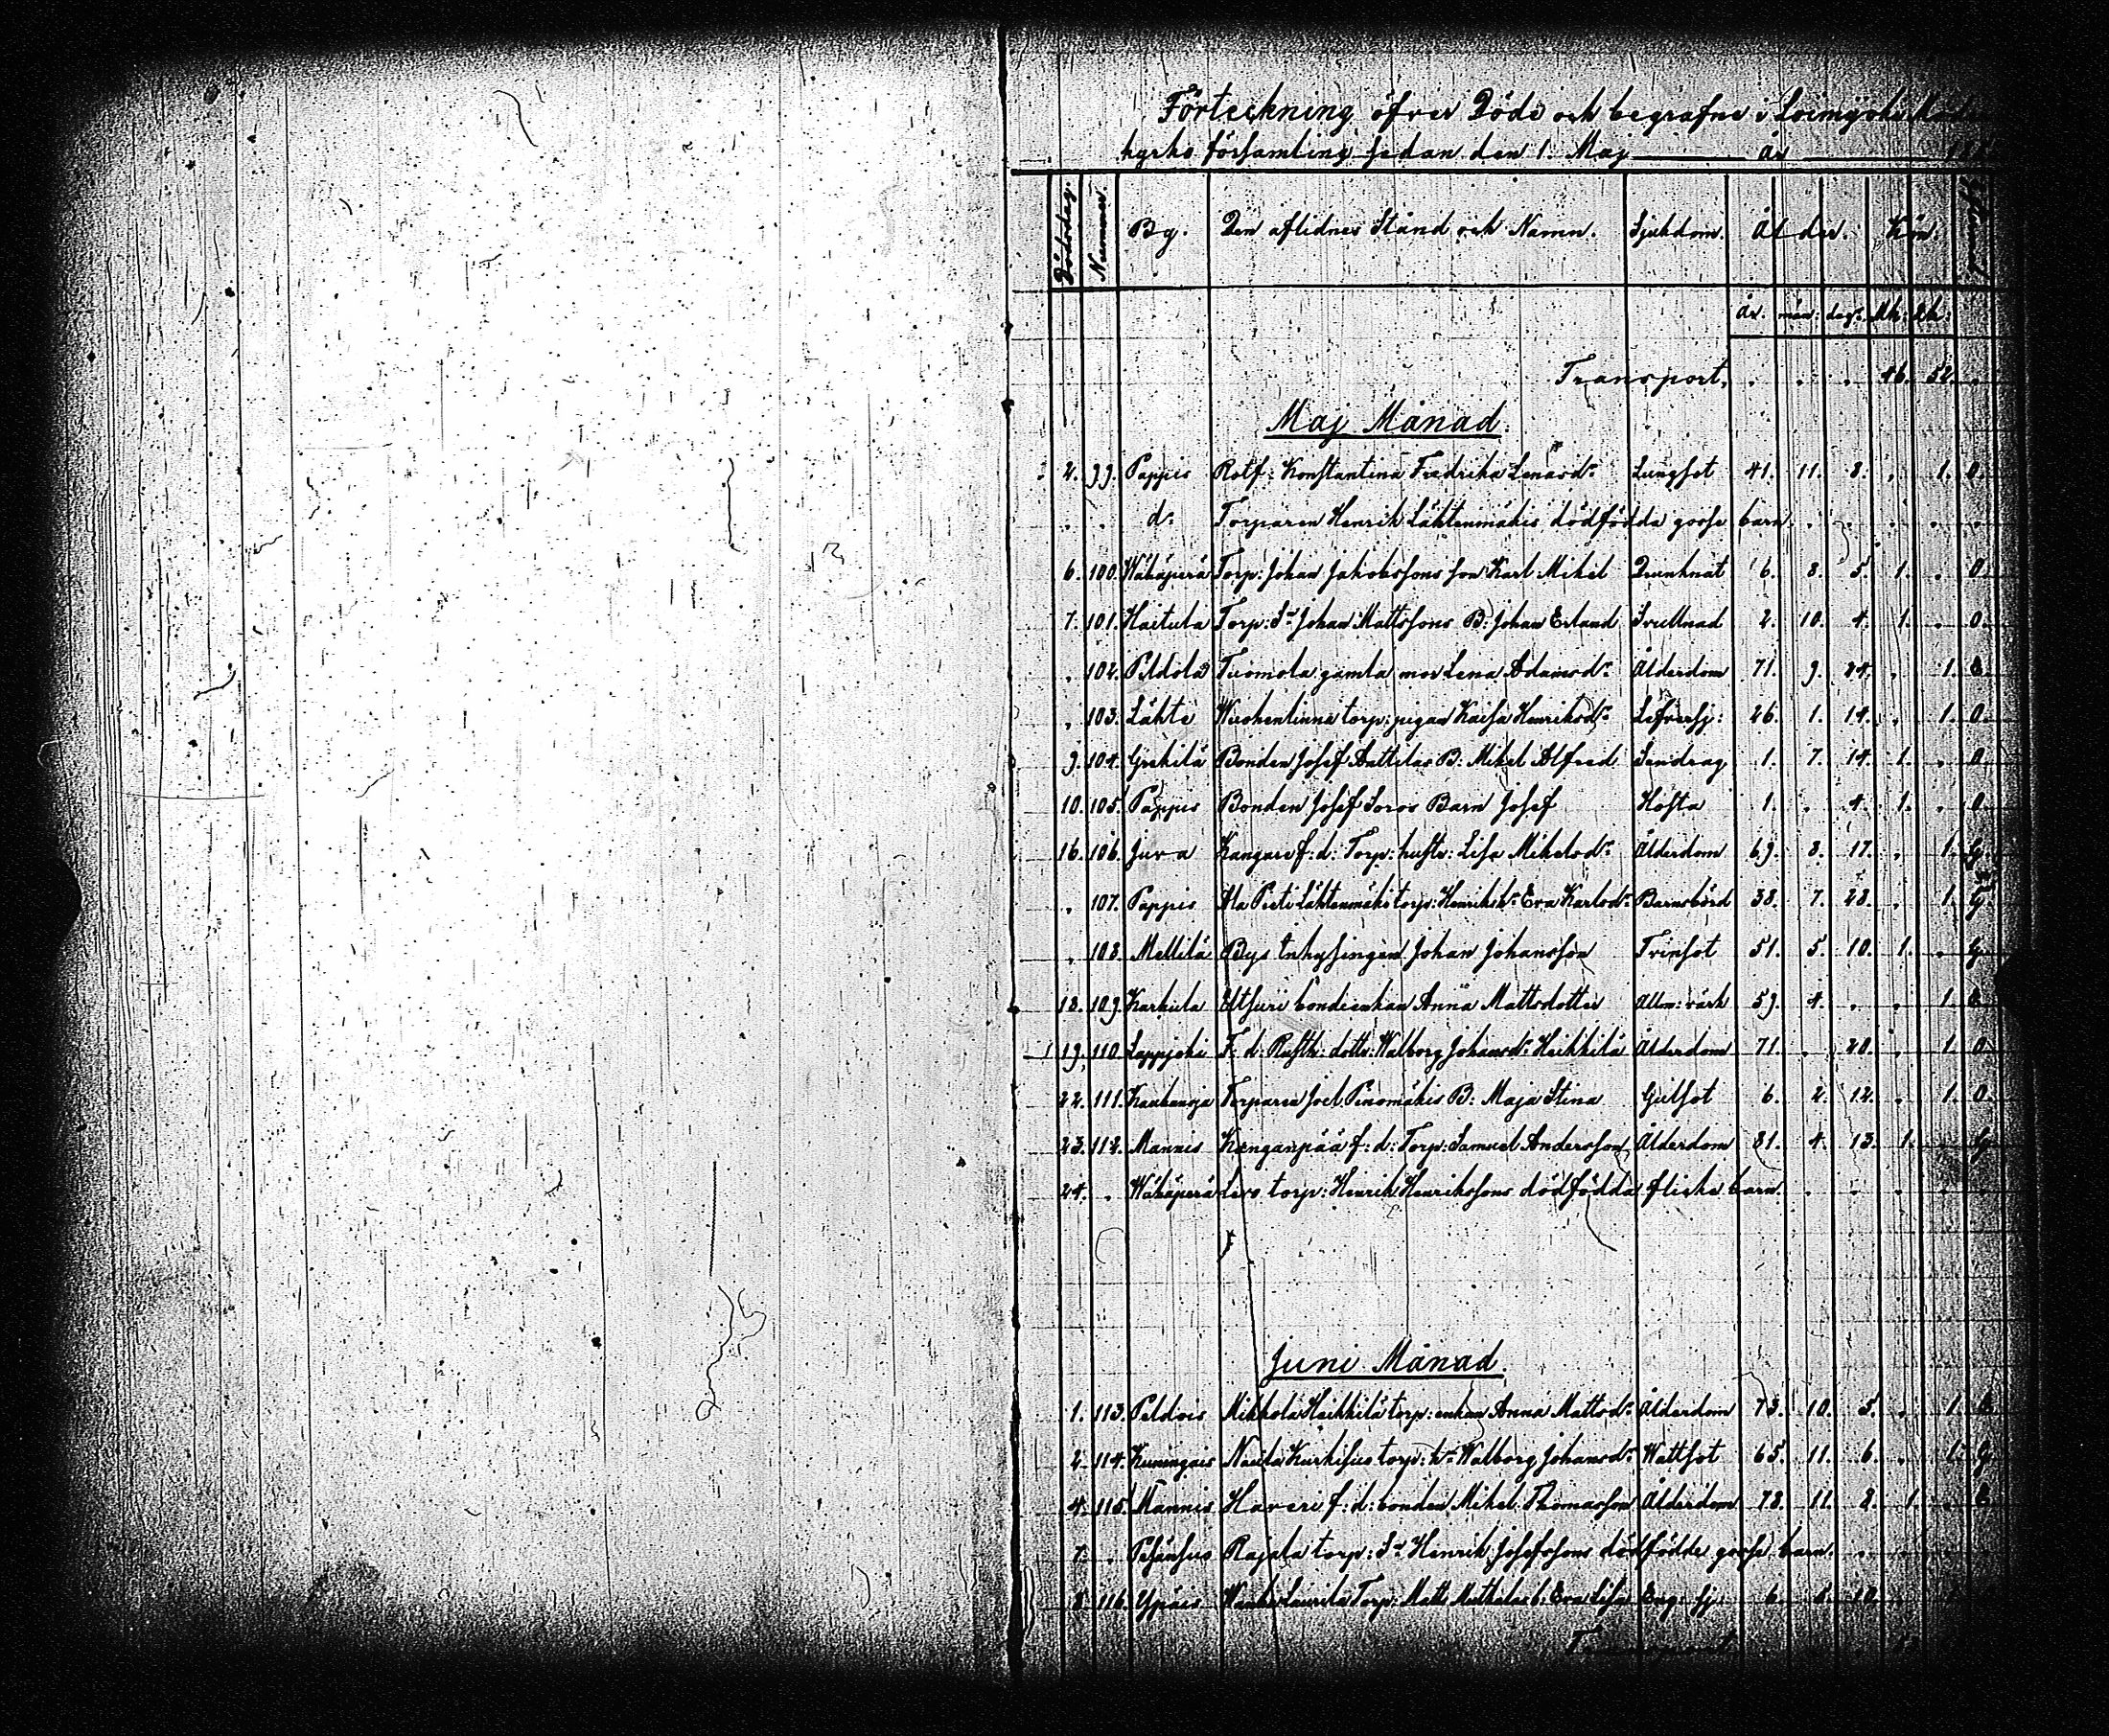 Förteckning öfver Döde och begrafne i Loimijoki Moder
kyrko församling sedan den 1. Maj år 18
Dödsdag. Nummer By. Den aflidnes Stånd och Namn. Sjukdom. Ålder. Kön.
År. mån: dag: Mk: Qk:
Transport, . . . 46. 52. .
Maj Månad.
2. 99. Pappis Rotf: Konstantina Fredrika Lenasdr Lungsot 41. 11. 8. . 1. O.
. . do Torparen Henrik Lähtenmäkis dödfödda gosse barn . . . . .
6. 100. Wähäperä Torp: Johan Jakobssons son Karl Mikel Drunknat 6. 8. 5. 1. . O.
7. 101. Haitula Torp: Sn Johan Mattssons B: Johan Erland Svullnad 2. 10. 4. 1. . O.
. 102. Peldola Tuomola gamla mor Lena Adamsdr Ålderdom 71. 9. 24. . 1. E.
. 103. Lähte torp: pigan Kaisa Henriksdr Lefversj: 26. 1. 14. . 1. O.
9. 104. Grekilä Bonden Josef Anttilas B: Mikel Alfred Sendrag 1. 7. 14. 1. . O.
10. 105. Pappis Bonden Josef Soros Barn Josef Hosta 1. . 4. 1. . O.
16. 106. Juva Kangare f: d: Torp: hustr: Lisa Mikelsdr Ålderdom 69. 8. 17. . 1. G.
. 107. Pappis Ala Pieti Lähtenmäki torp: Henriks hr Eva Karlsdr Barnsbörd 38. 7. 28. . 1. G.
. 108. Mellilä Bys Inhysingen Johan Johansson Trinsot 51. 5. 10. 1. . G.
18. 109. Karhula Eltsuri bondeenkan Anna Mattsdotter Allm: värk 59. 4. . . 1. E.
19. 110. Lappjoki F: d: Rusth: dottr: Walborg Johansdr Heikkilä Ålderdom 71. . 20. . 1. O.
22. 111. Kauhanoja Torparen Joel Penomäkis B: Maja Stina Gulsot 6. 2. 12. . 1. O.
23. 112. Mannis Kanganpää f: d: Torp: Samuel Andersson Ålderdom 81. 4. 13. 1. . G.
24. . Wähäperä Levo torp: Henrik Henrikssons dödfödda flicke barn. . . . . .
Juni Månad.
1. 113. Peldois Mikkola Heikkilä torp: enkan Anna Mattsdr Ålderdom 73. 10. 5. . 1. E.
2. 114. Kuningais Naula Kurkisuo torp: hr Walborg Johansdr Wattsot 65. 11. 6. . 1. G.
4. 115. Mannis Haveri f: d: bonden Mikel Thomasson Ålderdom 78. 11. 2. 1. . E.
7. . Pesänsuo Rajala torp: Sn Henrik Josefssons dödfödde gosse barn.
8. 116. Ypäis Laurila Torp: Matts b: Eva Lisa Eng: sj: 6. 6. 10.
Transport.